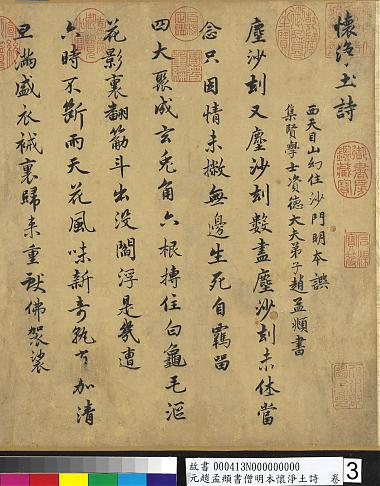 懷淨土詩
西天目山幻住沙門明本譔
集賢學士資德大夫弟子趙孟頫書
塵沙刼又塵沙刼數盡塵沙刼未休當
念只因情未撇無邊生死自羈留
四大聚成玄兔角六根摶住白龜毛漚
花影裏翻筋斗出没閻浮是幾遭
六時不斷雨天花風味新奇孰有加清
旦滿盛衣裓裏歸來重獻佛袈裟
故書 000413N000000000
元趙孟頫書僧明本懷淨土詩 卷
3